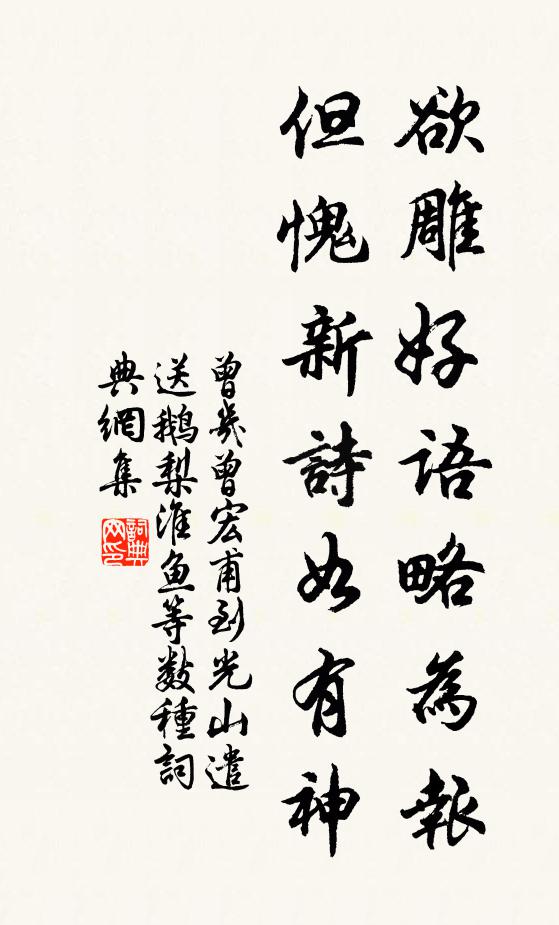 欲雕好語略為報
但愧新詩如有神
曾幾曾宏甫到光山遣
送鵝梨淮魚等數種詞
典網集
詞典
网印